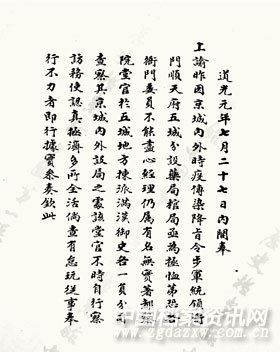 道光元年七月二十七日内閣奉
上諭昨因京城内外時疫傳染降旨令步軍統領衙
門順天府五城分設藥局棺局亟為拯恤第恐各
衙門委員不能盡心經理仍屬有名無實著都察
院堂官於五城地方揀派滿漢御史各一員分司
查察其京城内外設局之處該堂官不時自行察
訪務使認真拯濟多所全活倘查有怠玩從事奉
行不力者即行據實參奏欽此